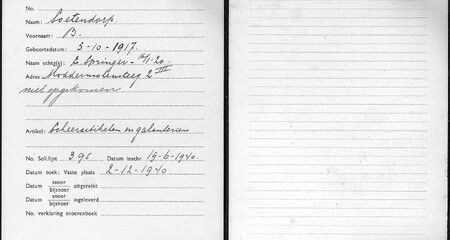 No.
Naam: Soetendorp
Voornaam: B.
Geboortedatum: 5-10-1917.
Naam echtg(e): E. Springer - 14/1.20.
Adres Moddermolensteeg 2 III
niet opgekomen
Artikel: Scheerartikelen en galanterien
No. Soll.lijst 395 Datum inschr. 19-6-1940.
Datum toek: Vaste plaats 2-12-1940.
Datum snoer/bijsnoer uitgereikt
Datum snoer/bijsnoer ingeleverd
No. verklaring snoerenboek